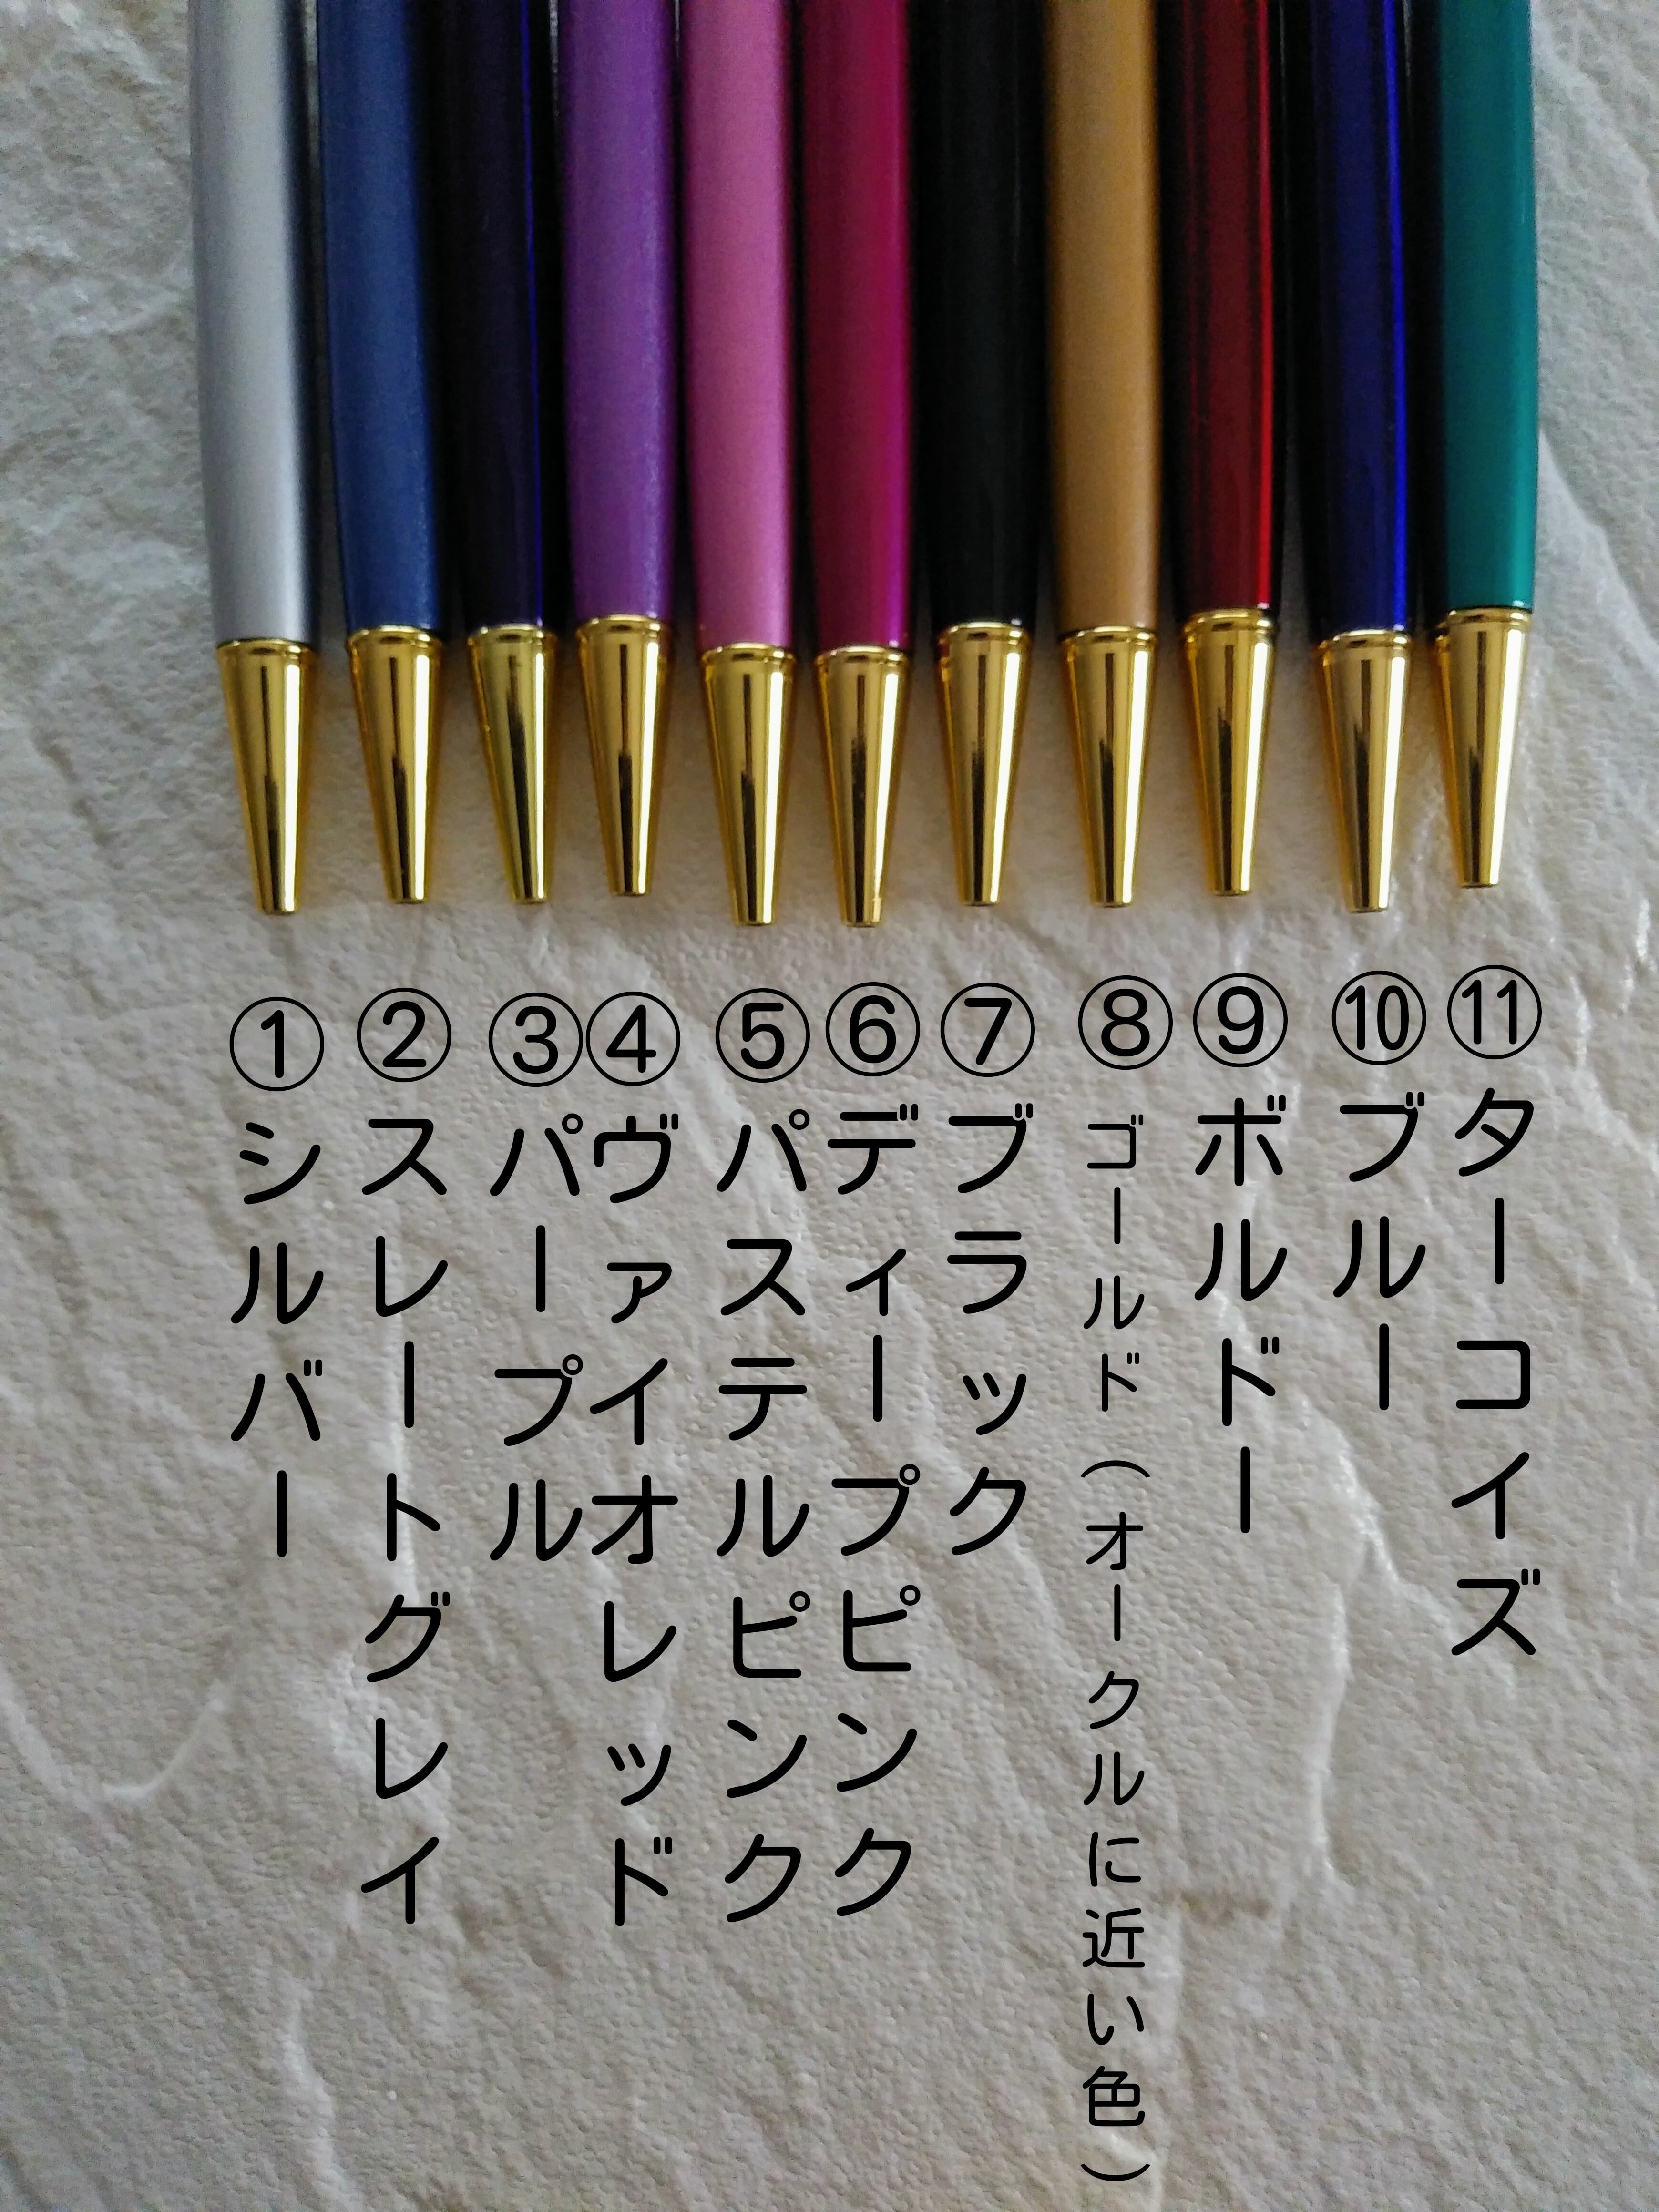 ①シルバー
②スレートグレイ
③パープル
④ヴァイオレッド
⑤パステルピンク
⑥ディープピンク
⑦ブラック
⑧ゴールド（オークルに近い色）
⑨ボルドー
⑩ブルー
⑪ターコイズ